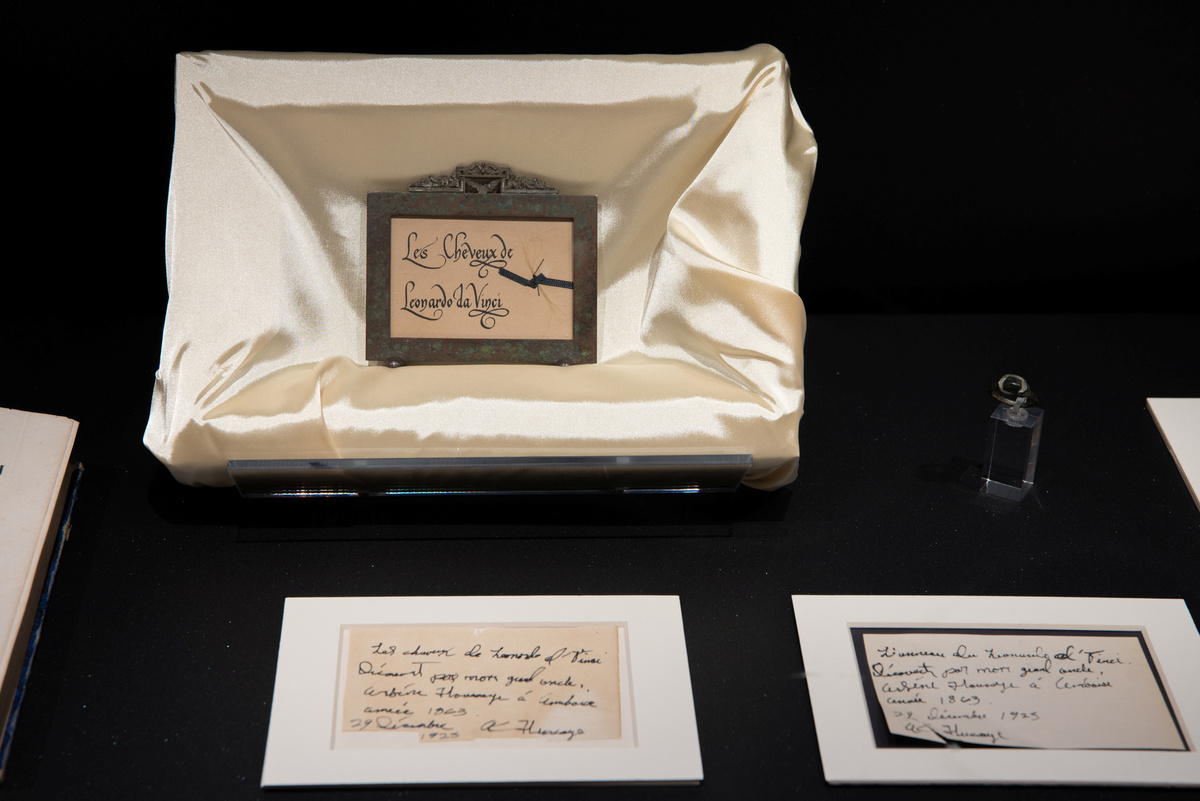 Les Cheveux de
Leonardo da Vinci
Les cheveux de Leonardo d' Vinci
Découvert par mon grand oncle,
Arsène Houssaye à Amboise
année 1863
29 Décembre
1925 A Houssaye
L'anneau du Leonardo d' Vinci.
Découvert par mon grand oncle,
Arsène Houssaye à Amboise
année 1863
29 Décembre 1925
A Houssaye